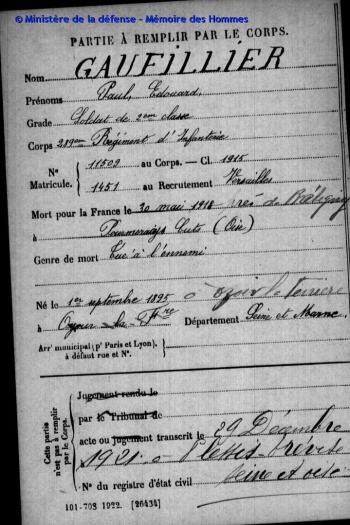 © Ministère de la défense - Mémoire des Hommes
PARTIE À REMPLIR PAR LE CORPS.
Nom GAUFILLIER
Prénoms Paul, Edouard,
Grade Soldat de 2ème classe
Corps 289ème Régiment d'Infanterie
N° 11509 au Corps. — Cl. 1915
Matricule. 1451 au Recrutement Versailles
Mort pour la France le 30 mai 1918 près de
à (Oise)
Genre de mort Tué à l'ennemi
Né le 1er septembre 1895 à ozoir la ferrière
à Ozoir-la-Fre Département Seine et Marne.
Arrt municipal (pr Paris et Lyon),
à défaut rue et N°.
Cette partie
n'est pas à remplir
par le Corps.
Jugement rendu le
par le Tribunal de
acte ou jugement transcrit le 29 Décembre
1921 à Plessis-Trévise
Seine et oise
N° du registre d'état civil
101-708 1922. [26434]